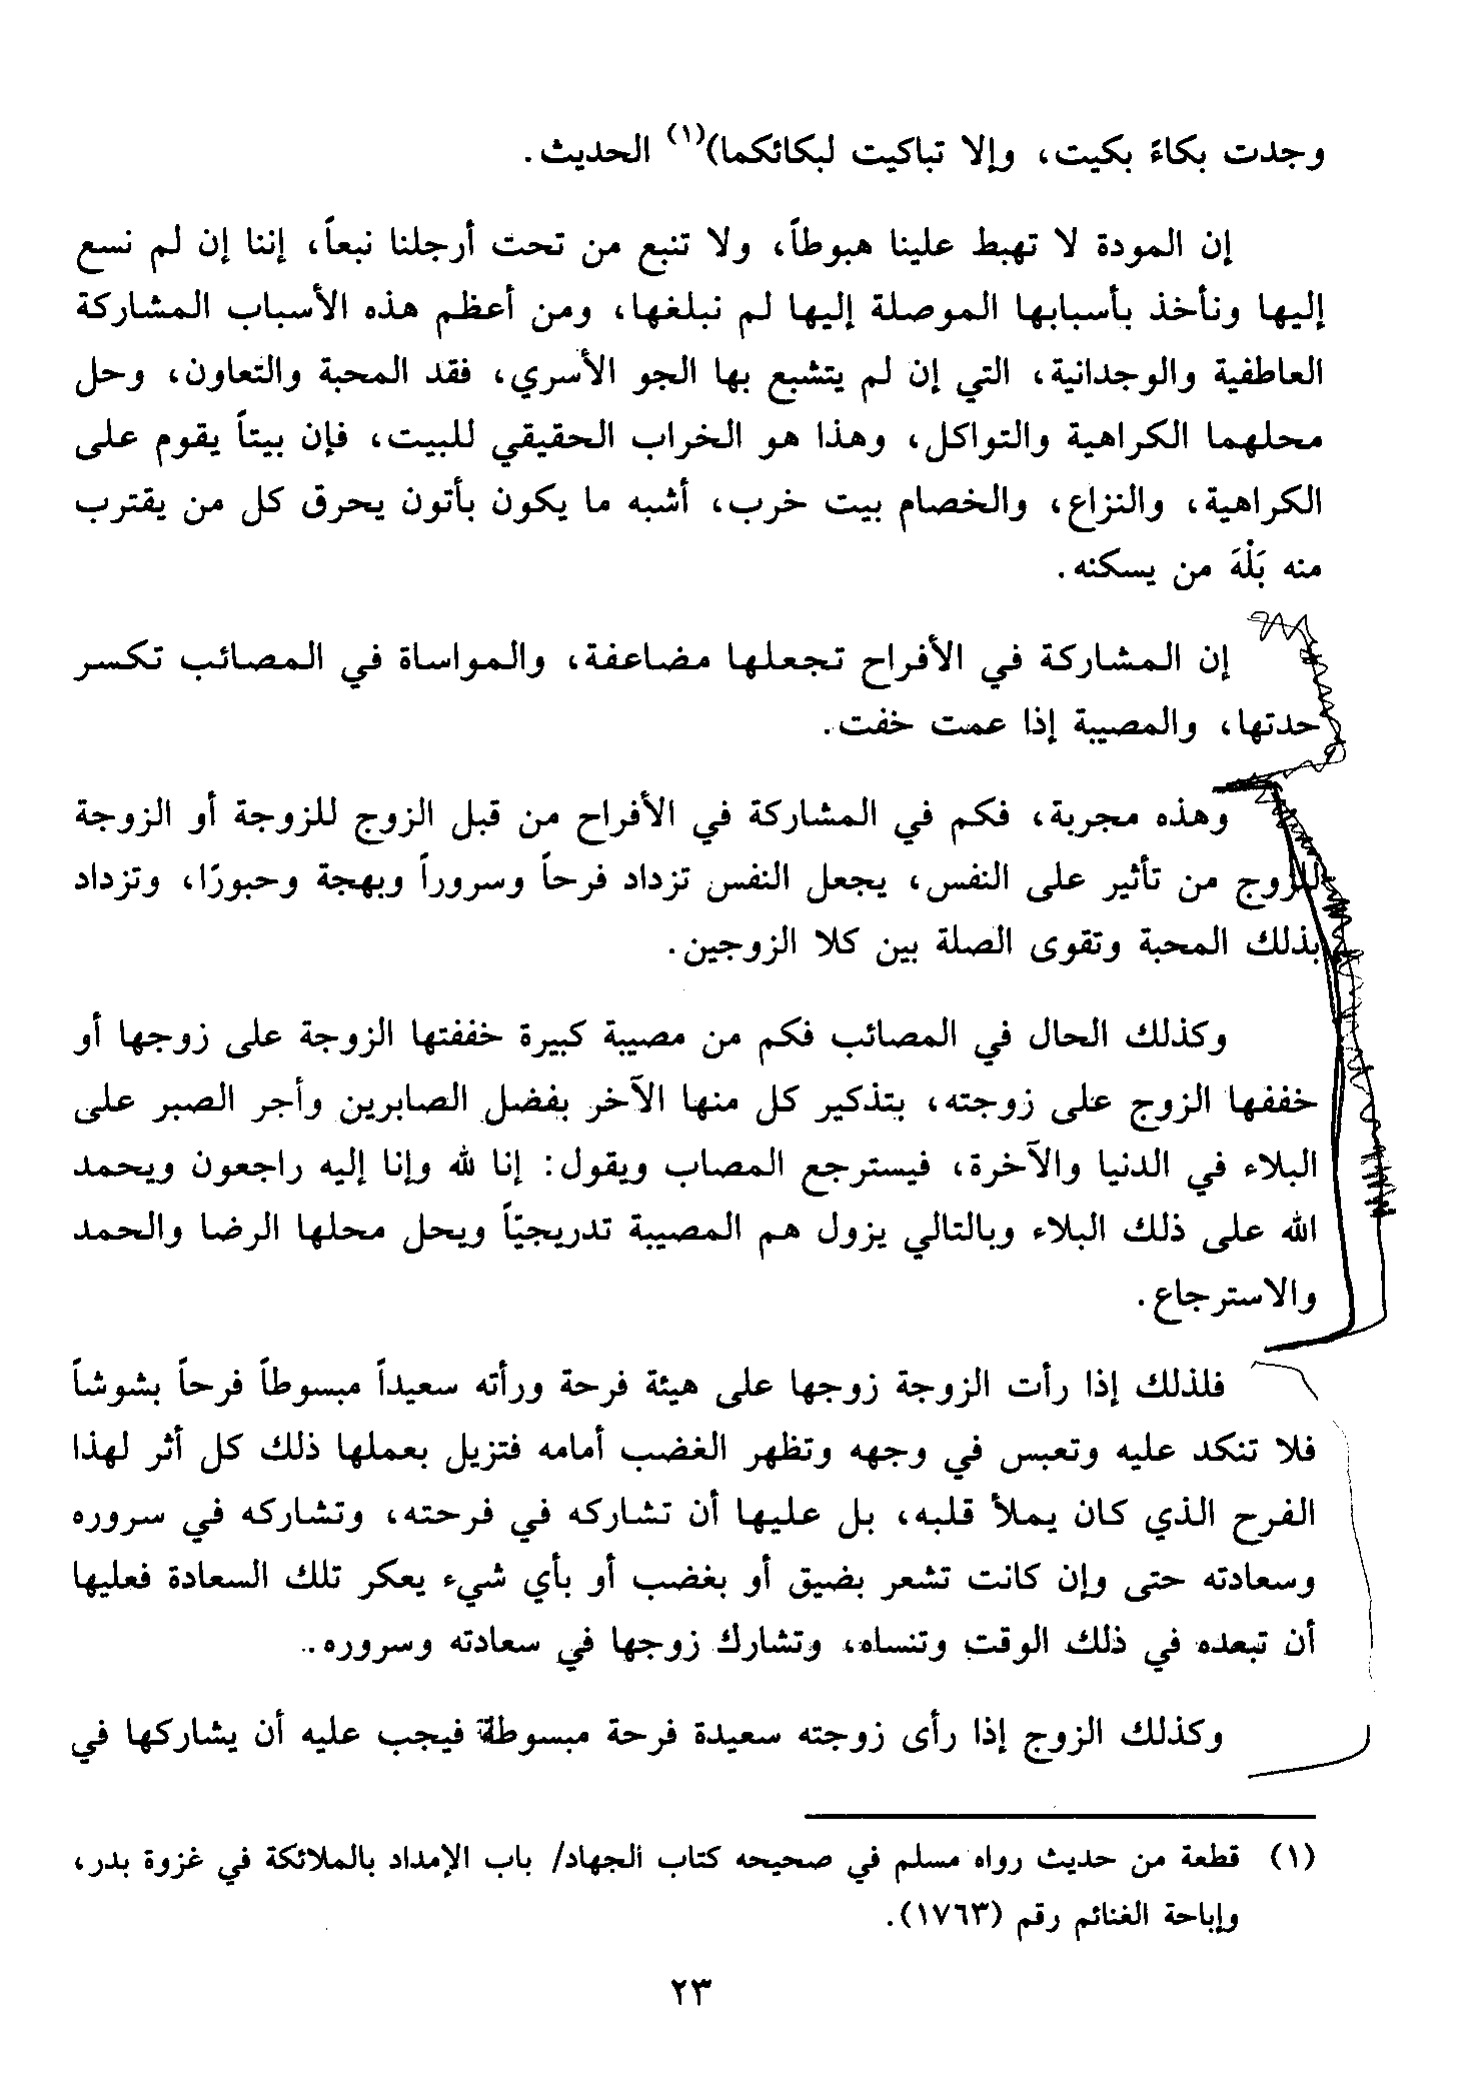 وجدت بكاءً بكيت، وإلا تباكيت لبكائكما)(١) الحديث.
إن المودة لا تهبط علينا هبوطاً، ولا تنبع من تحت أرجلنا نبعاً، إننا إن لم نسع
إليها ونأخذ بأسبابها الموصلة إليها لم نبلغها، ومن أعظم هذه الأسباب المشاركة
العاطفية والوجدانية، التي إن لم يتشبع بها الجو الأسري، فقد المحبة والتعاون، وحل
محلهما الكراهية والتواكل، وهذا هو الخراب الحقيقي للبيت، فإن بيتاً يقوم على
الكراهية، والنزاع، والخصام بيت خرب، أشبه ما يكون بأتون يحرق كل من يقترب
منه بَلْهَ من يسكنه.
إن المشاركة في الأفراح تجعلها مضاعفة، والمواساة في المصائب تكسر
حدتها، والمصيبة إذا عمت خفت.
وهذه مجربة، فكم في المشاركة في الأفراح من قبل الزوج للزوجة أو الزوجة
للزوج من تأثير على النفس، يجعل النفس تزداد فرحاً وسروراً وبهجة وحبورًا، وتزداد
بذلك المحبة وتقوى الصلة بين كلا الزوجين.
وكذلك الحال في المصائب فكم من مصيبة كبيرة خففتها الزوجة على زوجها أو
خففها الزوج على زوجته، بتذكير كل منها الآخر بفضل الصابرين وأجر الصبر على
البلاء في الدنيا والآخرة، فيسترجع المصاب ويقول: إنا لله وإنا إليه راجعون ويحمد
الله على ذلك البلاء وبالتالي يزول هم المصيبة تدريجيّاً ويحل محلها الرضا والحمد
والاسترجاع.
فلذلك إذا رأت الزوجة زوجها على هيئة فرحة ورأته سعيداً مبسوطاً فرحاً بشوشاً
فلا تنكد عليه وتعبس في وجهه وتظهر الغضب أمامه فتزيل بعملها ذلك كل أثر لهذا
الفرح الذي كان يملأ قلبه، بل عليها أن تشاركه في فرحته، وتشاركه في سروره
وسعادته حتى وإن كانت تشعر بضيق أو بغضب أو بأي شيء يعكر تلك السعادة فعليها
أن تبعده في ذلك الوقت وتنساه، وتشارك زوجها في سعادته وسروره..
وكذلك الزوج إذا رأى زوجته سعيدة فرحة مبسوطة فيجب عليه أن يشاركها في
(١) قطعة من حديث رواه مسلم في صحيحه كتاب الجهاد/ باب الإمداد بالملائكة في غزوة بدر،
وإباحة الغنائم رقم (١٧٦٣).
٢٣